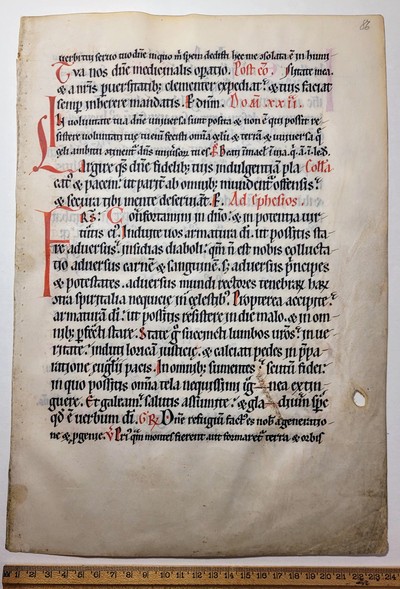 86
verbi tui servo tuo dñe in quo m̃ spem dedisti hec me ꝯsolata ẽ in humi
Tua nos dñe medicinalis opatio. Post cõ. litate mea.
& a nr̃is pversitatib; clementer expediat: & tuis faciat
semp inherere mandatis. P. dñm. Do᷑ã. xxii.
In voluntate tua dñe universa sunt posita & non ẽ qui possit re
sistere voluntati tue tu enĩ fecisti omĩa celũ & terrã & universa q̃
celi ambitu ꝯtinent̃ dñs universoꝝ tu es.
Largire q̃s dñe fidelib; tuis indulgentiã pla Coll'a
catꝰ & pacem: ut parit̃ ab omnib; mundent̃ offensis:
& secura tibi mente deserviant. P. Ad ephesios.
FRS: Confortamini in dño: & in potentia vir
tutis eiꝰ. Induite vos armatura dĩ. ut possitis sta
re adversus insidias diaboli: qm̃ ñ est nobis colluctа
tio adversus carnẽ & sanguinẽ. s; adversus principes
& potestates. adversus mundi rectores tenebraꝝ haꝝ
ɔtra spiritalia nequicie in celestib;. Propterea accipite
armaturã dĩ: ut possitis resistere in die malo. & in om
nib; pfecti stare. State g̊ succincti lumbos vr̃os: in ve
ritate: induti lorica justicie. & calciati pedes in p̃pa
ratione euglii pacis. In omnib; sumentes scutũ fidei:
in quo possitis omĩa tela nequissimi ignea extin
guere. Et galeam salutis assumite: & gladium spc̃
qd̃ ẽ verbum dĩ. GR Dñe refugiũ factꝰ es nob̃ a generatio
ne & pgenie. V Priꝰq̃m montes fierent aut formaret̃ terra & orbis
1 2 3 4 5 6 7 8 9 10 11 12 13 14 15 16 17 18 19 20 21 22 23 24 25